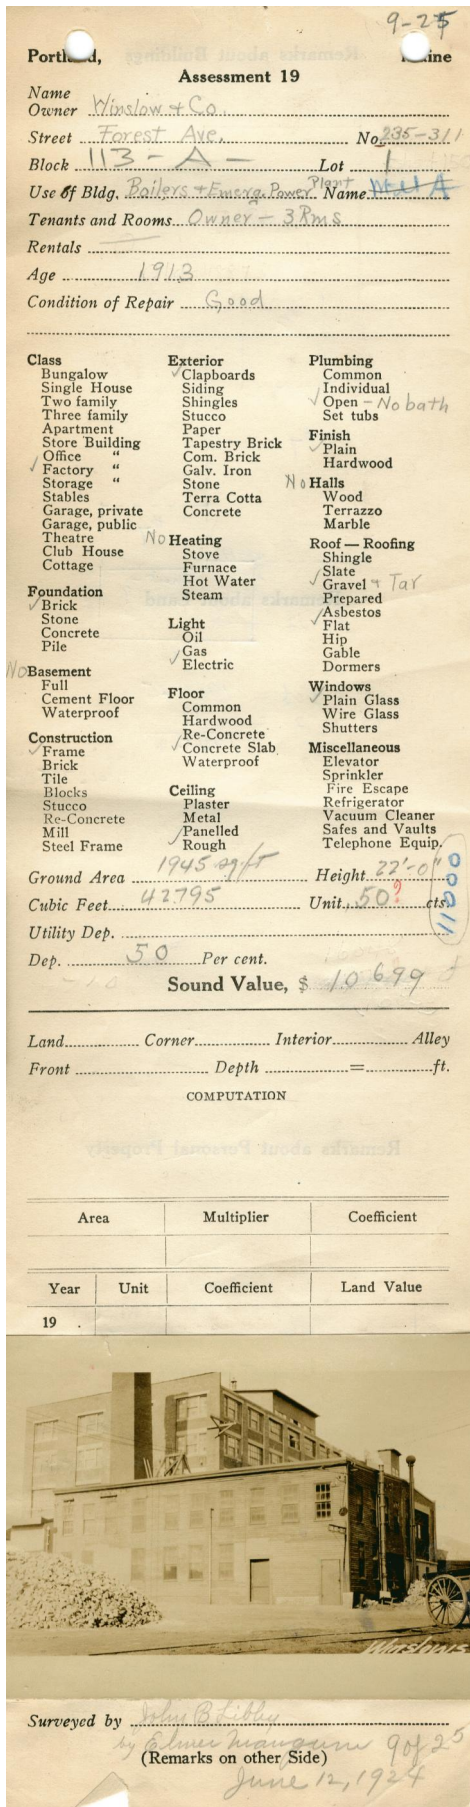 9-25
Portland, Maine
Assessment 19
Name
Owner Winslow & Co.
Street Forest Ave. No. 235-311
Block 113-A- Lot 1
Use of Bldg. Boilers + Emerg. Power Plant Name
Tenants and Rooms Owner - 3 Rms
Rentals
Age 1913
Condition of Repair Good
Class
Bungalow
Single House
Two family
Three family
Apartment
Store Building
Office "
✓ Factory "
Storage "
Stables
Garage, private
Garage, public
Theatre
Club House
Cottage
Foundation
✓ Brick
Stone
Concrete
Pile
No Basement
Full
Cement Floor
Waterproof
Construction
✓ Frame
Brick
Tile
Blocks
Stucco
Re-Concrete
Mill
Steel Frame
Exterior
✓ Clapboards
Siding
Shingles
Stucco
Paper
Tapestry Brick
Com. Brick
Galv. Iron
Stone
Terra Cotta
Concrete
No Heating
Stove
Furnace
Hot Water
Steam
Light
Oil
Gas
✓ Electric
Floor
Common
Hardwood
Re-Concrete
✓ Concrete Slab
Waterproof
Ceiling
Plaster
Metal
Panelled
✓ Rough
Plumbing
Common
Individual
✓ Open - No bath
Set tubs
Finish
✓ Plain
Hardwood
No Halls
Wood
Terrazzo
Marble
Roof — Roofing
Shingle
Slate
✓ Gravel & Tar
Prepared
Asbestos
✓ Flat
Hip
Gable
Dormers
Windows
✓ Plain Glass
Wire Glass
Shutters
Miscellaneous
Elevator
Sprinkler
Fire Escape
Refrigerator
Vacuum Cleaner
Safes and Vaults
Telephone Equip.
Ground Area 1945 sq ft Height 22'-0"
Cubic Feet 42795 Unit 50? cts.
11000
Utility Dep.
Dep. 50 Per cent.
Sound Value, $ 10699
Land Corner Interior Alley
Front Depth = ft.
COMPUTATION
Area Multiplier Coefficient
Year Unit Coefficient Land Value
19 .
Surveyed by John B Libby
by Elmer
9 of 25
(Remarks on other Side)
June 12, 1924